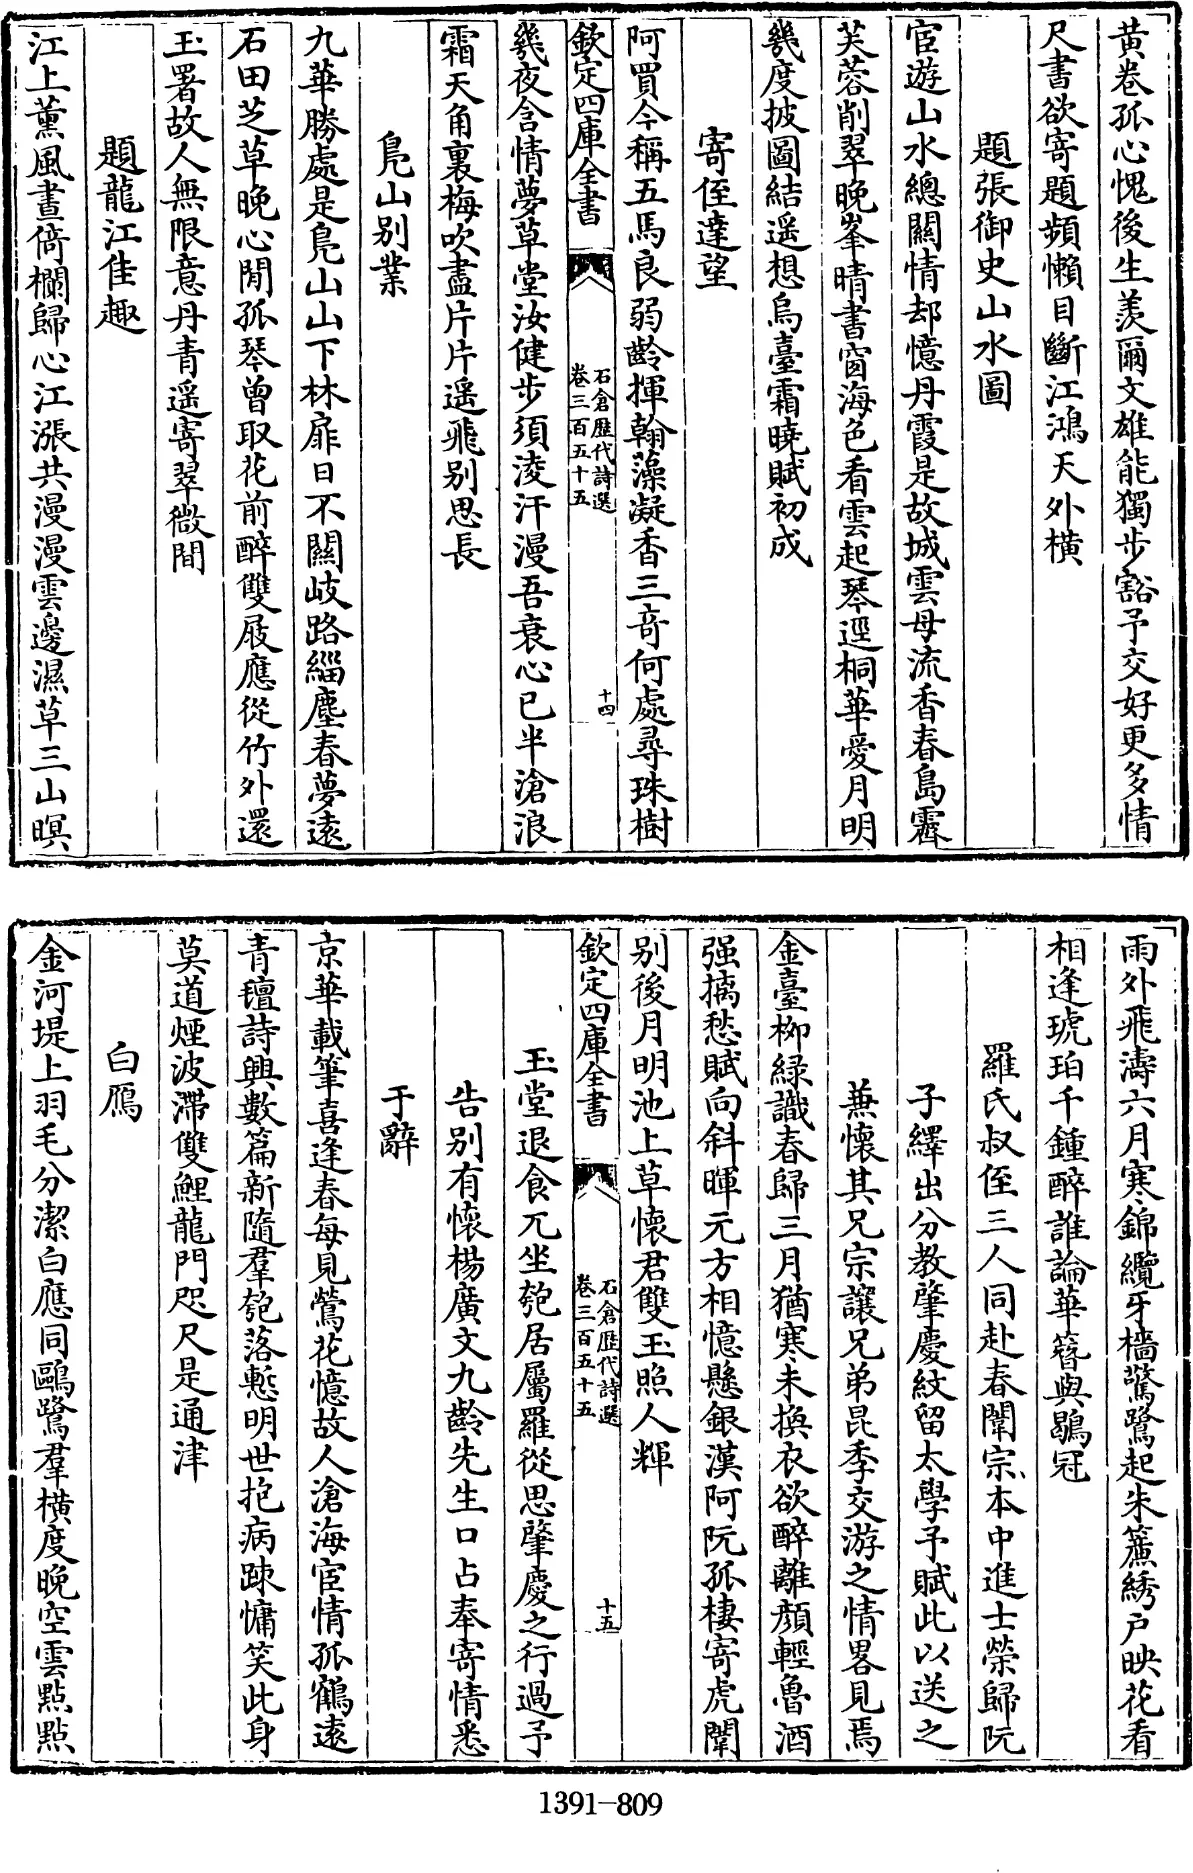 黄卷孤心愧後生羨爾文雄能獨步豁予交好更多情
尺書欲寄題頻懶目斷江鴻天外橫
題張御史山水圖
宦遊山水總關情却憶丹霞是故城雲母流香春島霽
芙蓉削翠晚峯晴書窗海色看雲起琴逕桐華愛月明
幾度披圖結遥想烏臺霜曉賦初成
寄侄達望
阿買今稱五馬良弱齡揮翰藻凝香三奇何處尋珠樹
欽定四庫全書
石倉歷代詩選
卷三百五十五
十四
幾夜含情夢草堂汝健步須淩汗漫吾衰心已半滄浪
霜天角裏梅吹盡片片遥飛别思長
鳧山别業
九華勝處是鳧山山下林扉日不關岐路緇塵春夢遠
石田芝草晚心閒孤琴曾取花前醉雙屐應從竹外還
玉署故人無限意丹青遥寄翠微間
題龍江佳趣
江上薰風晝倚欄歸心江漲共漫漫雲邊濕草三山暝
雨外飛濤六月寒錦纜牙檣驚鷺起朱簾綉戶映花看
相逢琥珀千鍾醉誰論華簪與鶡冠
羅氏叔侄三人同赴春闈宗本中進士榮歸阮
子繹出分教肇慶紋留太學予賦此以送之
兼懷其兄宗讓兄弟昆季交游之情畧見焉
金臺柳緑識春歸三月猶寒未換衣欲醉離顔輕魯酒
强摛愁賦向斜暉元方相憶懸銀漢阿阮孤棲寄虎闈
别後月明池上草懷君雙玉照人輝
欽定四庫全書
石倉歷代詩選
卷三百五十五
十五
玉堂退食兀坐匏居屬羅從思肇慶之行過予
告别有懷楊廣文九齡先生口占奉寄情悉
于辭
京華載筆喜逢春每見鶯花憶故人滄海宦情孤鶴遠
青氊詩興數篇新隨羣匏落慙明世抱病踈慵笑此身
莫道煙波滯雙鯉龍門咫尺是通津
白鴈
金河堤上羽毛分潔白應同鷗鷺羣橫度晚空雲點點
1391-809